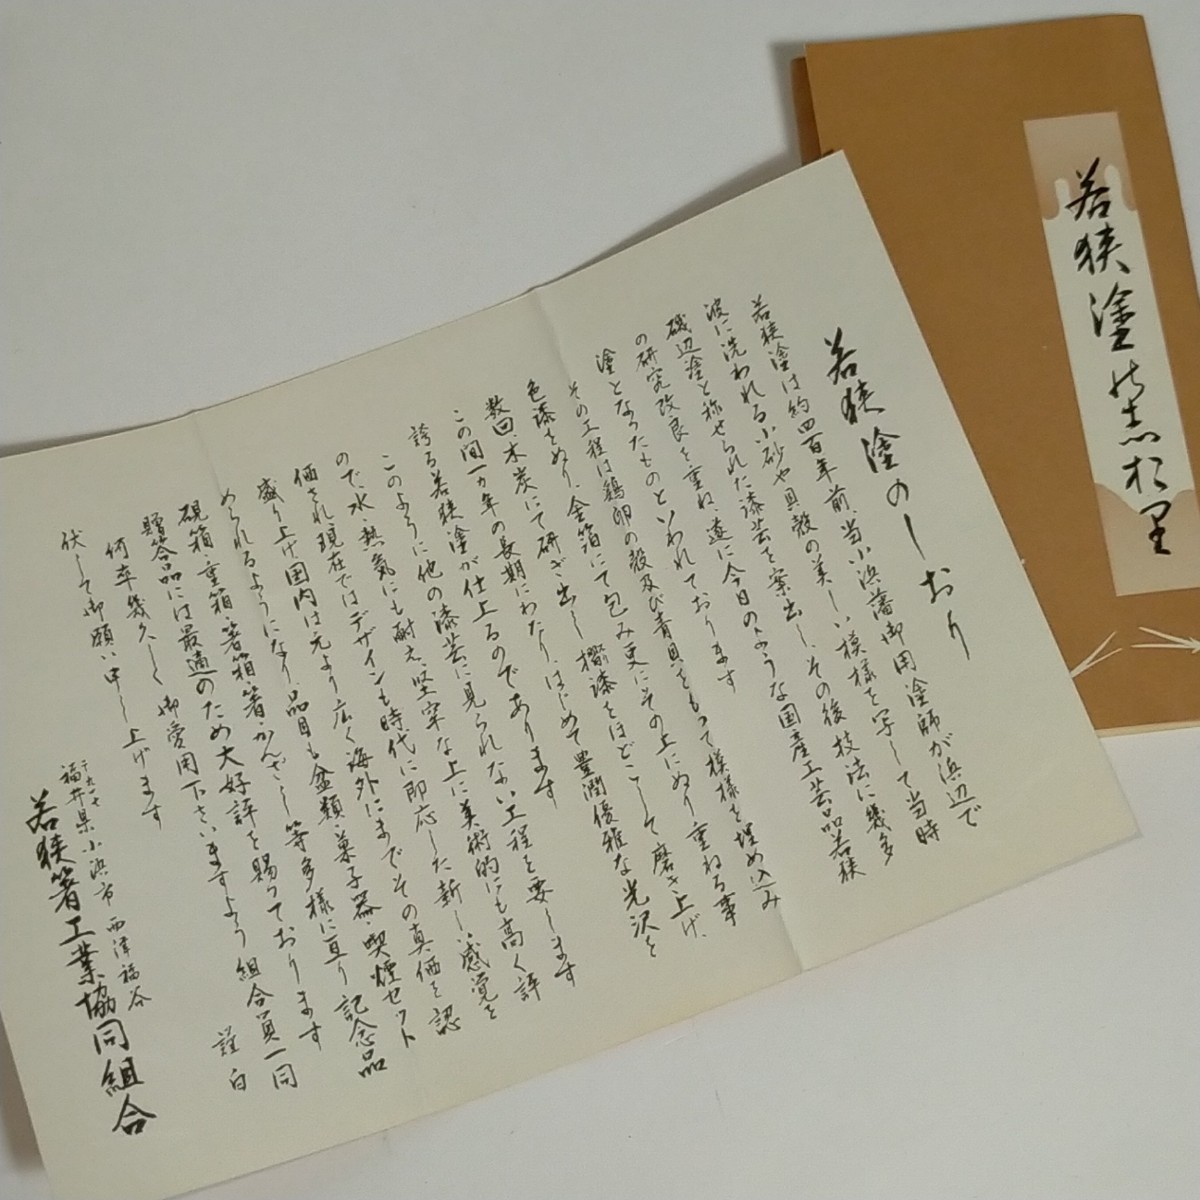 若狭塗のしおり
若狭塗は約四百年前、当小浜藩御用塗師が浜辺で
波に洗われる小砂や貝殻の美しい模様を写して当時
磯辺塗と称せられた漆芸を案出し、その後技法に幾多
の研究改良を重ね、遂に今日のような国産工芸品若狭
塗となったものといわれております
その工程は鶏卵の殻及び青貝をもって模様を埋め込み
色漆をぬり、金箔にて包み更にその上にぬり重ねる事
数回、木炭にて研ぎ出し 摺漆をほどこして磨き上げ、
この間一カ年の長期にわたり、はじめて豊潤優雅な光沢を
誇る若狭塗が仕上るのであります
このように他の漆芸に見られない工程を要します
ので、水、熱気にも耐え、堅牢な上に美術的にも高く評
価され現在ではデザインも時代に即応した新しい感覚を
盛り上げ国内は元より広く海外にまでその真価を認
められるようになり、品目も盆類・菓子器・喫煙セット
硯箱・重箱・箸箱箸・かんざし等多様に亘り記念品
贈答品には最適のため大好評を賜っております
何卒幾久しく御愛用下さいますよう 組合員一同
伏して御願い申し上げます
謹白
〒九一七
福井県小浜市西津福谷
若狭箸工業協同組合
若狭塗能志於里